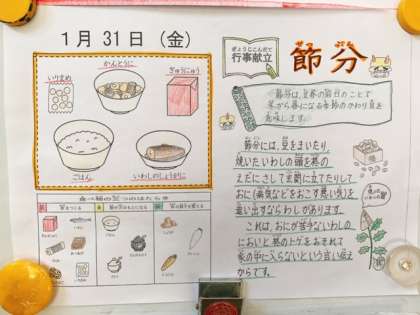 1月31日(金)
かんとうに
ぎゅうにゅう
いりまめ
ごはん
いわしのしょうがに
ぎょうじこんだて
行事献立
せつぶん
節分
節分は、立春の前日のことで
冬から春になる季節のかわり目を
意味します。
節分には、豆をまいたり、
焼いたいわしの頭を柊の
えだにさして玄関に立てたりして
おに(病気などをおこす悪い気)を
追い出すならわしがあります。
これは、おにが苦手ないわしの
においと柊のトゲをおそれて
家の中に入らないという言い伝え
からです。